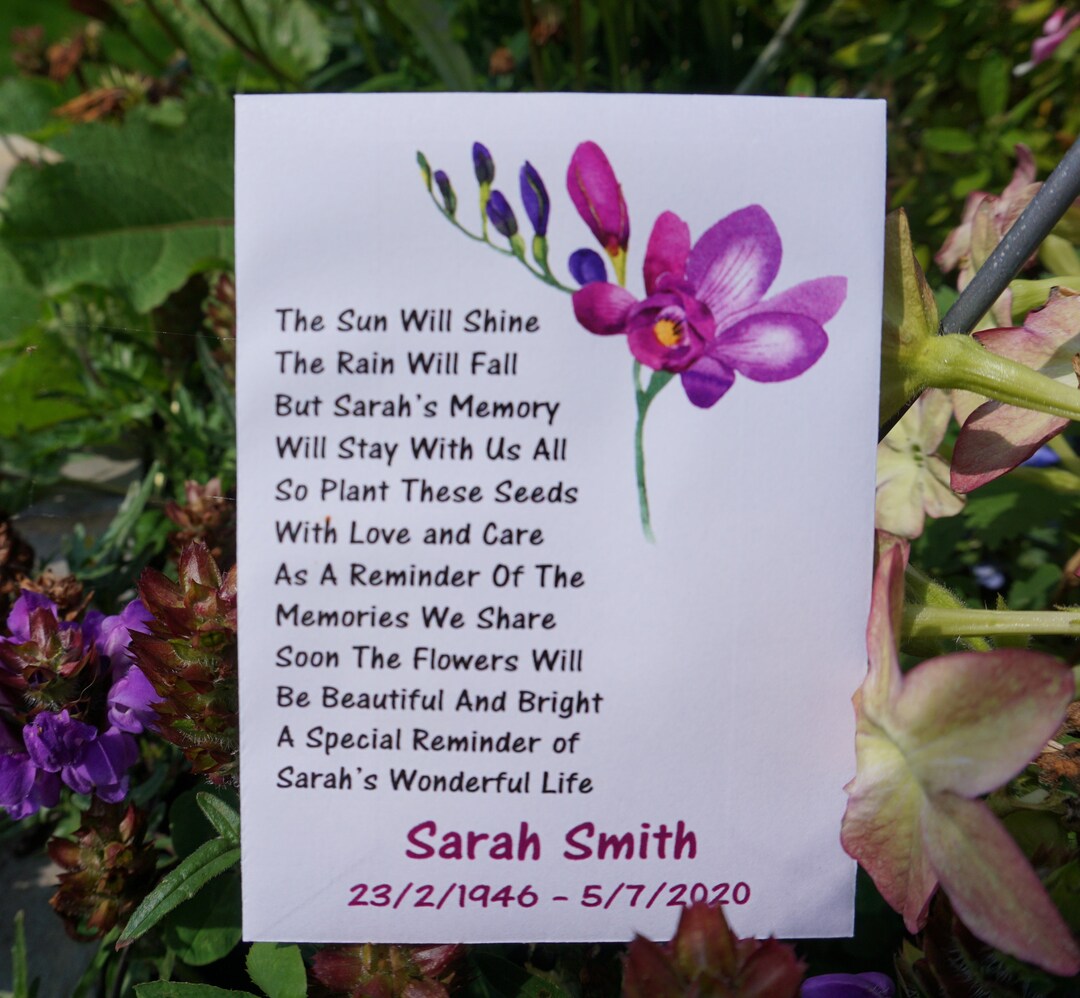 The Sun Will Shine
The Rain Will Fall
But Sarah's Memory
Will Stay With Us All
So Plant These Seeds
With Love and Care
As A Reminder Of The
Memories We Share
Soon The Flowers Will
Be Beautiful And Bright
A Special Reminder of
Sarah's Wonderful Life
Sarah Smith
23/2/1946 - 5/7/2020